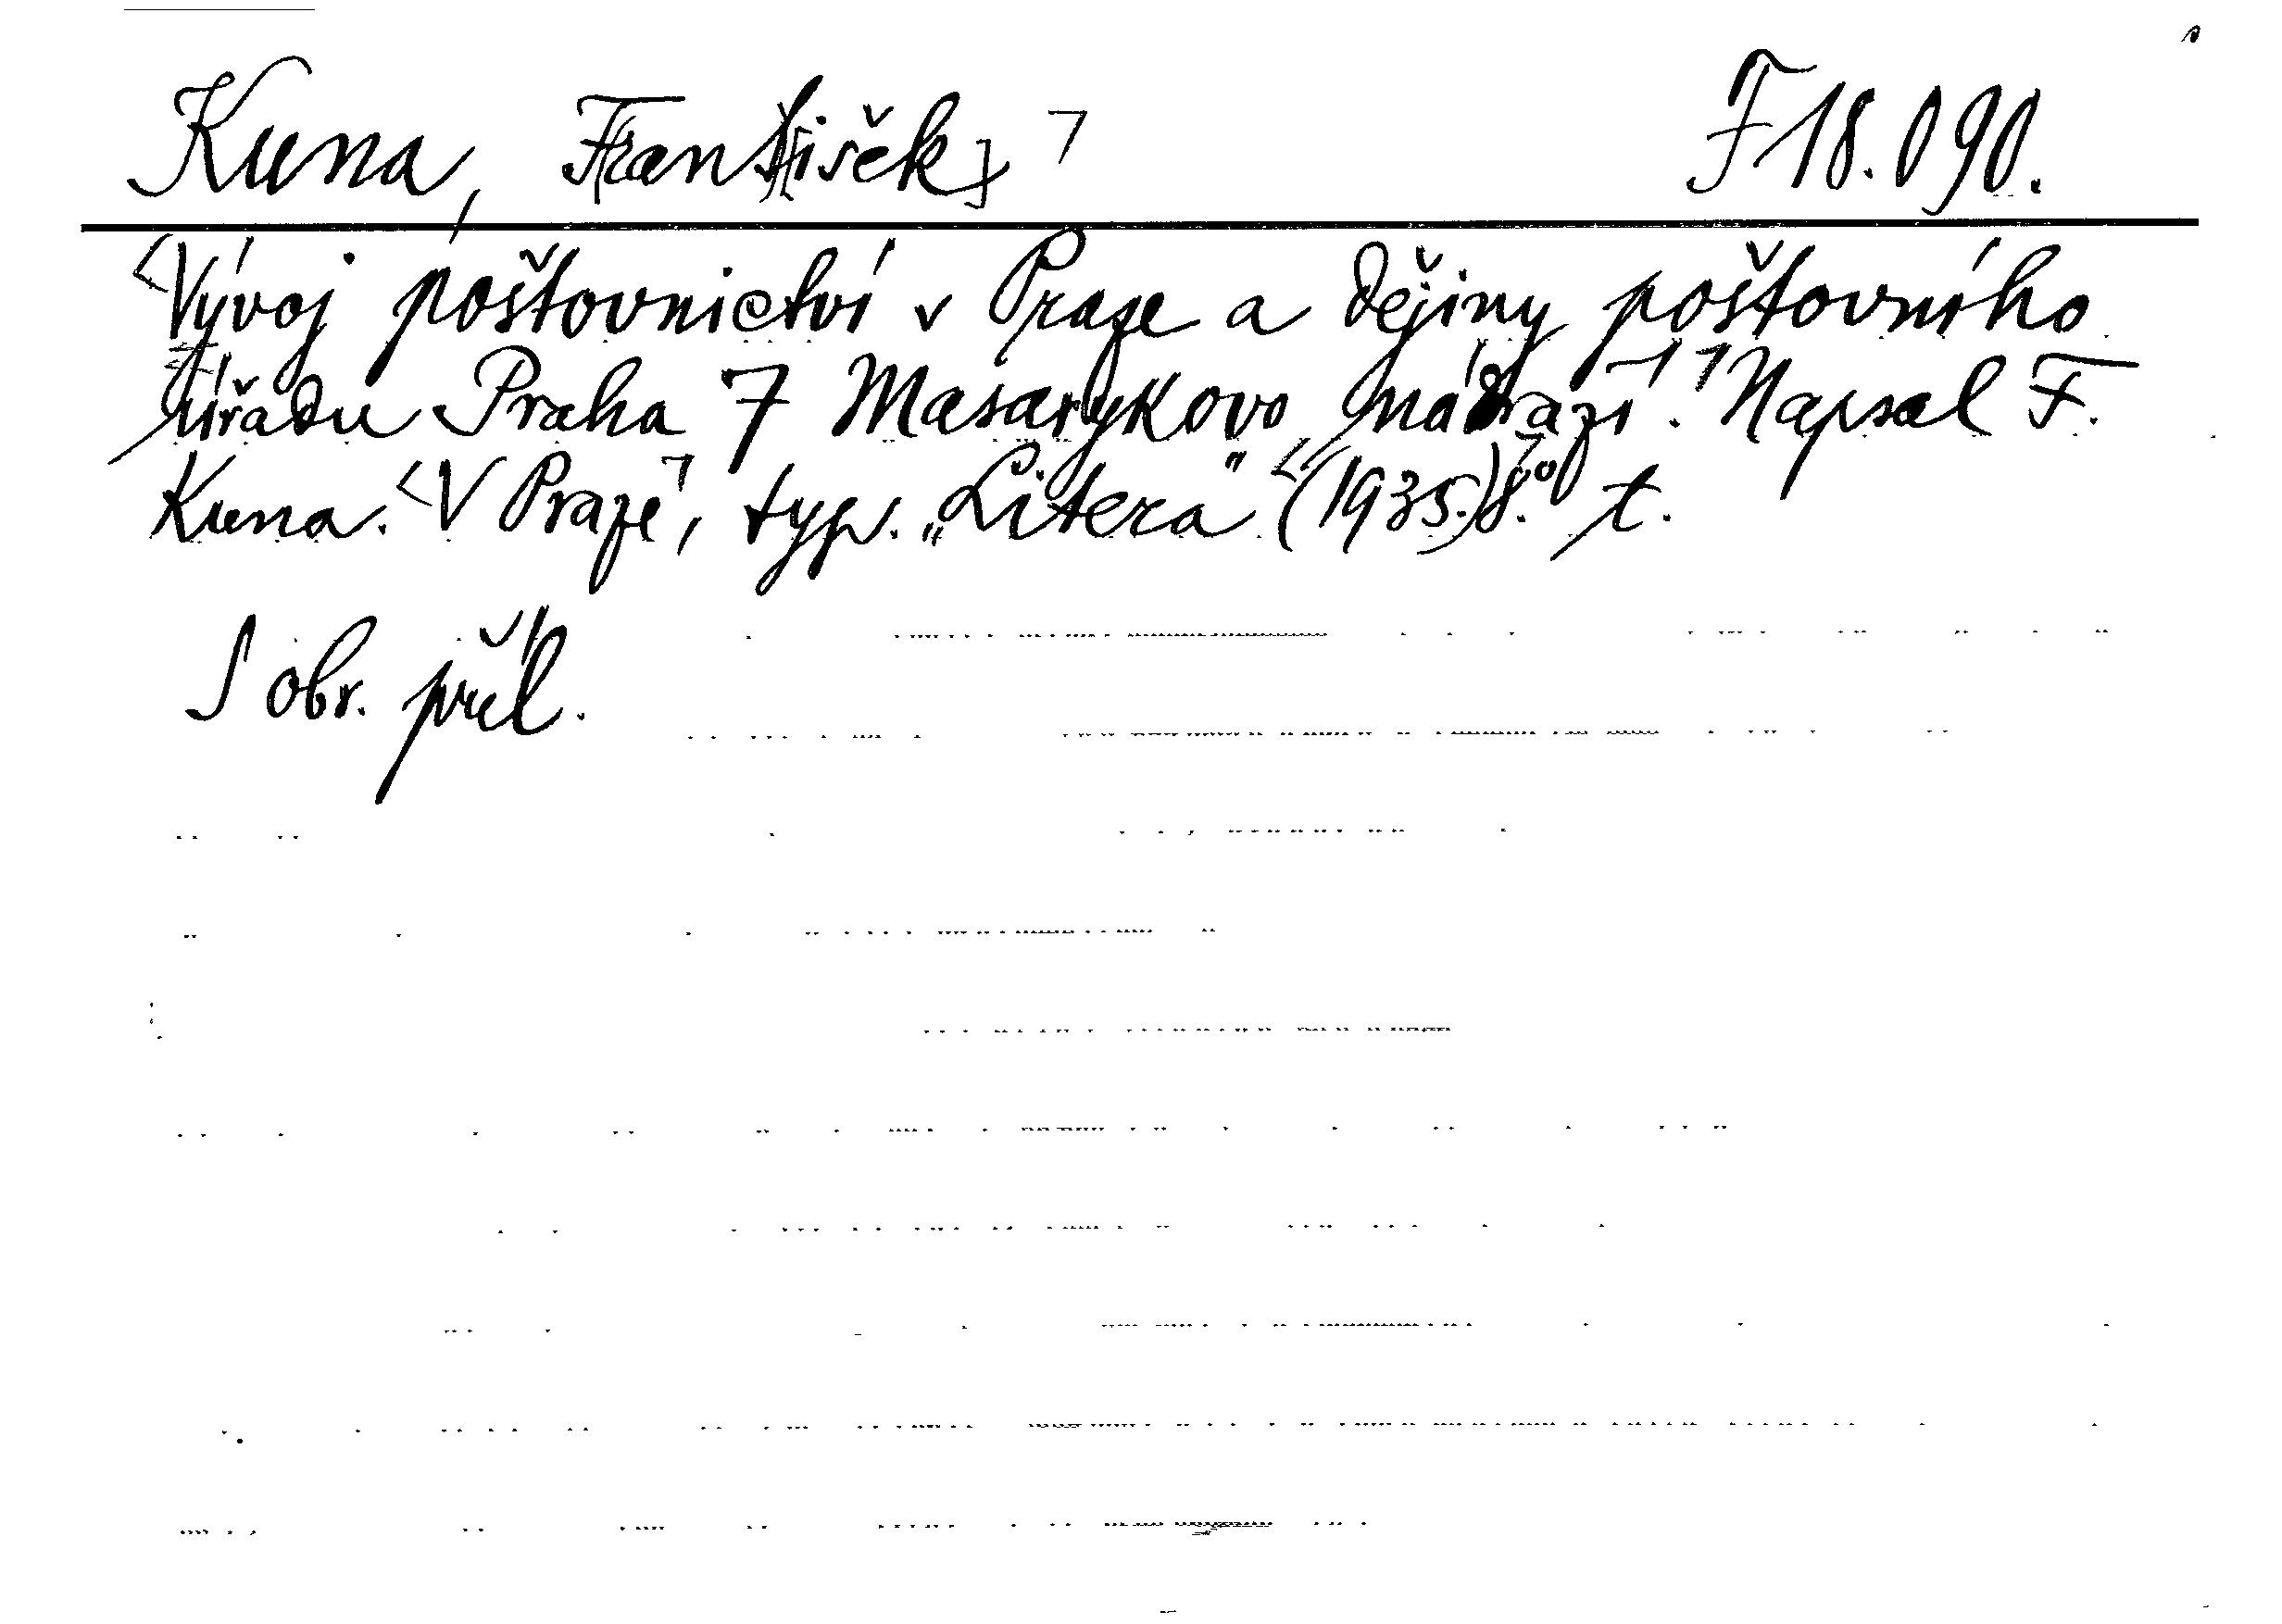 Kuna, František] F 18.090.
Vývoj poštovnictví v Praze a dějiny poštovního
úřadu Praha 7 Masarykovo nádraží. Napsal F.
Kuna. V Praze, typ. „Litera" (1935.) 8.° t.
S obr. příl.